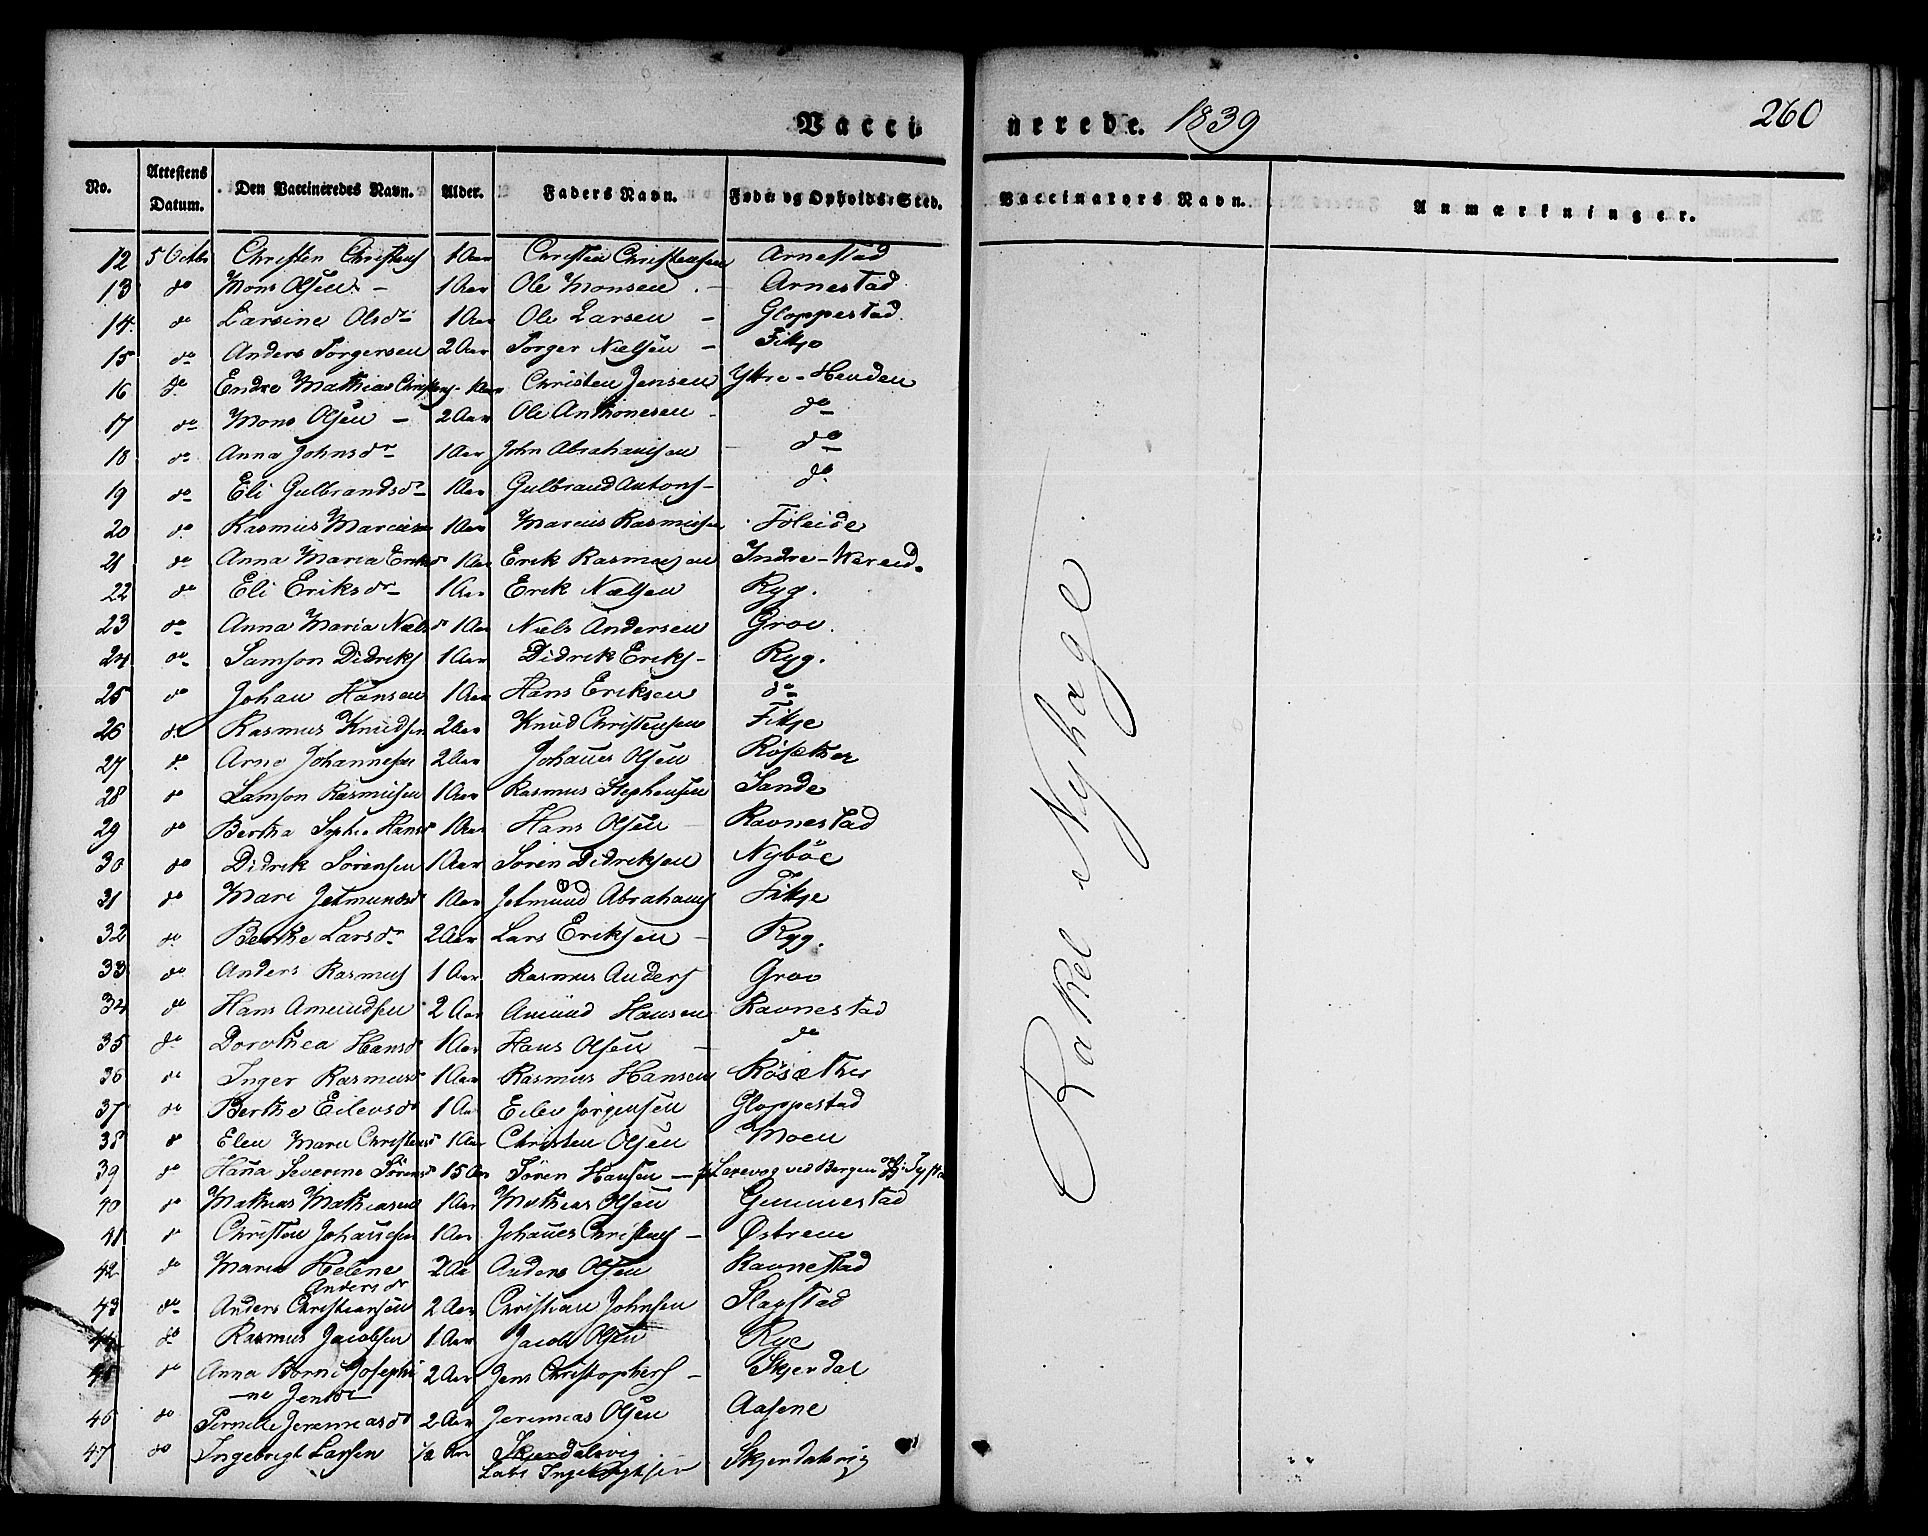 Vaccinerede. 1839
260
No. Attestens Datum. Den Vaccineredes Navn. Alder. Faders Navn. Føde og Opholds-Sted. Vaccinators Navn. Anmærkninger.
12 5 Octbr Christen Christens 1 Aar Christen Christensen Arnestad
13 do Mons Olsen - 1 Aar Ole Monsen - Arnestad
14 do Larsine Olsdr 1 Aar Ole Larsen - Gloppestad
15 do Anders Torgersen 2 Aar Torger Nielsen - Fitje
16 do Endre Mathias Christens 1 Aar Christen Jensen Yttre-Henden
17 do Mons Olsen - 2 Aar Ole Anthonesen - do
18 do Anna Johnsdr 1 Aar John Abrahamsen do
19 do Eli Gulbrandsdr 1 Aar Gulbrand Antons- do
20 do Rasmus Marcusen 1 Aar Marcus Rasmussen Føleide
21 do Anna Maria Eriksd 1 Aar Erik Rasmussen Indre-Wereid.
22 do Eli Eriksdr 1 Aar Erik Nielsen Ryg.
23 do Anna Maria Nielsd 1 Aar Niels Andersen Grov.
24 do Samson Didriks 1 Aar Didrik Eriks- Ryg.
25 do Johan Hansen 1 Aar Hans Eriksen do
26 do Rasmus Knudsen 2 Aar Knud Christensen Fitje
27 do Arne Johannesen 2 Aar Johannes Olsen Røsæther
28 do Samson Rasmusen 1 Aar Rasmus Stephensen Sande
29 do Bertha Sophie Hansd 1 Aar Hans Olsen Ravnestad
30 do Didrik Sørensen 1 Aar Søren Didriksen Nybøe
31 do Mari Jetmundsd 1 Aar Jetmund Abrahams Fitje
32 do Berthe Larsdr 2 Aar Lars Eriksen - Ryg.
33 do Anders Rasmus 1 Aar Rasmus Anders Grov
34 do Hans Amundsen 2 Aar Amund Hansen Ravnestad
35 do Dorothea Hansd 1 Aar Hans Olsen - do
36 do Inger Rasmusd 1 Aar Rasmus Hansen Røsæther
37 do Berthe Eilevsd 1 Aar Eilev Jørgensen Gloppestad
38 do Elen Marie Christensd 1 Aar Christen Olsen Moen
39 do Hana Severine Sørensd 15 Aar Søren Hansen - Laxevog ved Bergen
40 do Mathias Mathiasen 1 Aar Mathias Olsen Gimmestad
41 do Christen Johannesen 1 Aar Johannes Christens - Østrem
42 do Maria Helene 2 Aa Anders Olsen Ravnestad
Andersdr
43 do Anders Christiansen 2 Aar Christian Johnsen Slagstad
44 do Rasmus Jacobsen 1 Aar Jacob Olsen Rye
45 do Anna Borni Josephi 2 Aar Jens Christophers - Skjerdal
-ne Jensdr
46 do Pernille Jeremiasd 2 Aar Jeremias Olsen Aasene
47 do Ingebrigt Larsen 1/2 Aar Skjerdalsvig Skjerdalsvig
Lars Ingebrigtsen
Rakel Nyhage.